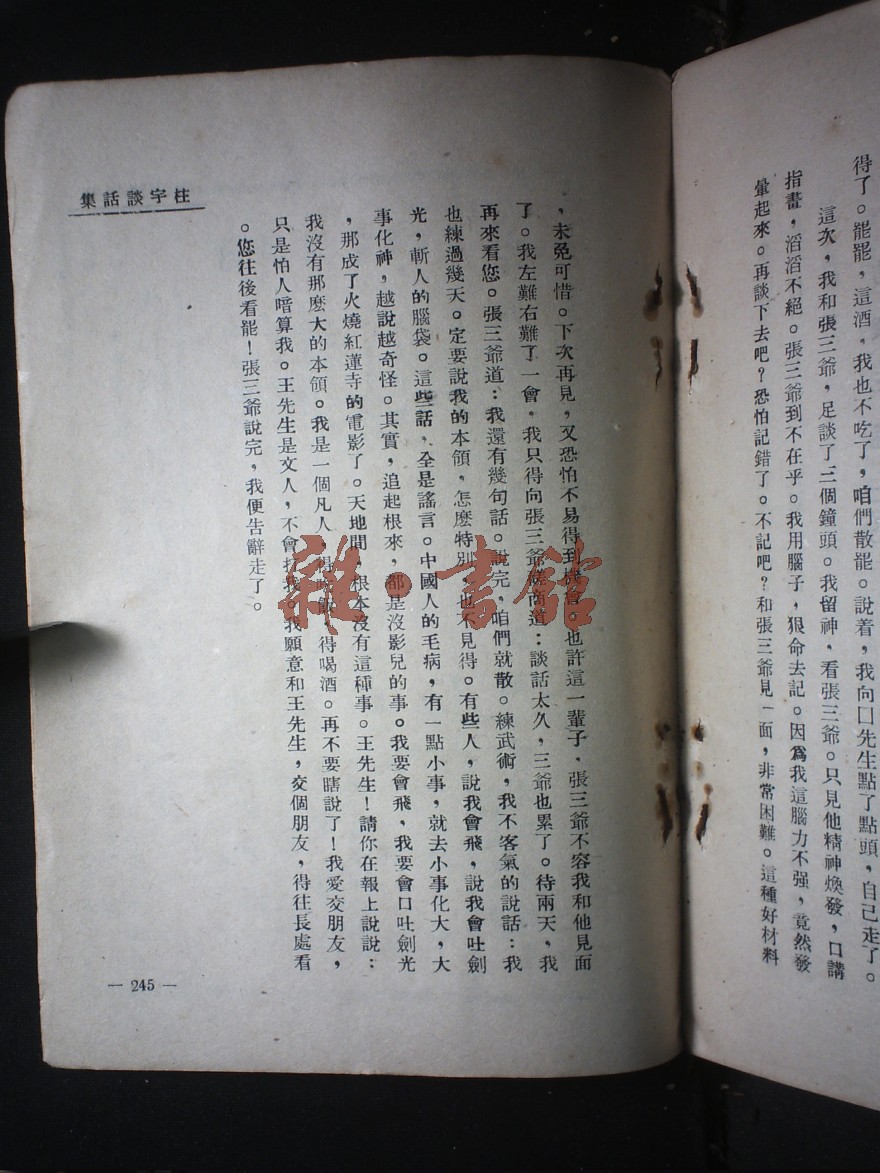 得了。罷罷，這酒，我也不吃了，咱們散罷。說着，我向囗先生點了點頭，自己走了。
這次，我和張三爺，足談了三個鐘頭。我留神，看張三爺。只見他精神煥發，口講
指畫，滔滔不絕。張三爺到不在乎。我用腦子，狠命去記。因爲我這腦力不强，竟然發
暈起來。再談下去吧？恐怕記錯了。不記吧？和張三爺見一面，非常困難。這種好材料
，未免可惜。下次再見，又恐怕不易得到機會。也許這一輩子，張三爺不容我和他見面
了。我左難右難了一會，我只得向張三爺磋商道：談話太久，三爺也累了。待兩天，我
再來看您。張三爺道：我還有幾句話。說完，咱們就散。練武術，我不客氣的說話：我
也練過幾天。定要說我的本領，怎麽特別，也不見得。有些人，說我會飛，說我會吐劍
光，斬人的腦袋。這些話，全是謠言。中國人的毛病，有一點小事，就去小事化大，大
事化神，越說越奇怪。其實，追起根來，都是沒影兒的事。我要會飛，我要會口吐劍光
，那成了火燒紅蓮寺的電影了。天地間，根本沒有這種事。王先生！請你在報上說說：
我沒有那麽大的本領。我是一個凡人，得吃飯，得喝酒。再不要瞎說了！我愛交朋友，
只是怕人暗算我。王先生是文人，不會打我。我願意和王先生，交個朋友，得往長處看
。您往後看罷！張三爺說完，我便告辭走了。
集話談宇柱
— 245 —
雜·書館